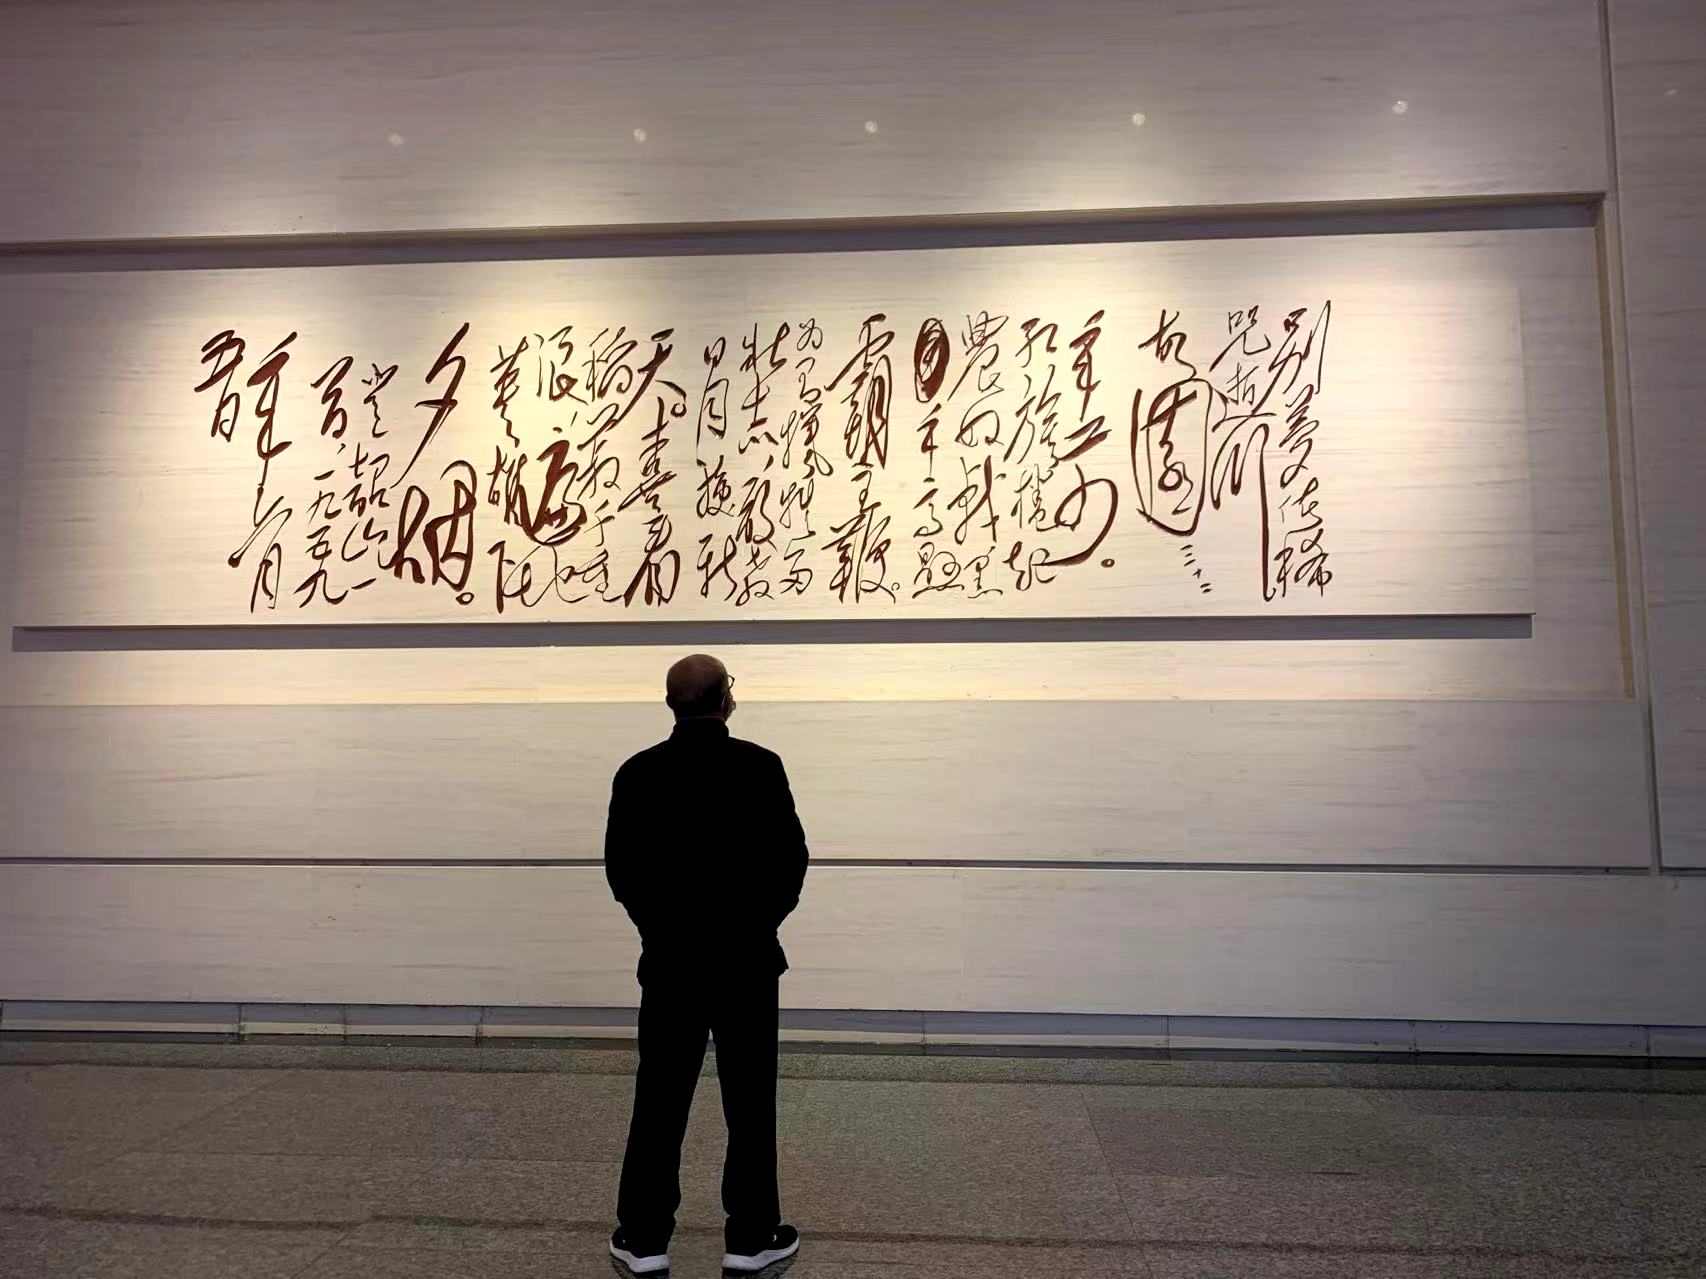 别梦依稀
咒逝川
故園三十二
年前。
红旗捲起
農奴戟黑
手高悬
霸主鞭。
为有犧牲多
壮志,敢教
日月换新
天。喜看
稻菽千重
浪,遍地
英雄下
夕烟。
登韶山一
首,一九五九
年六月